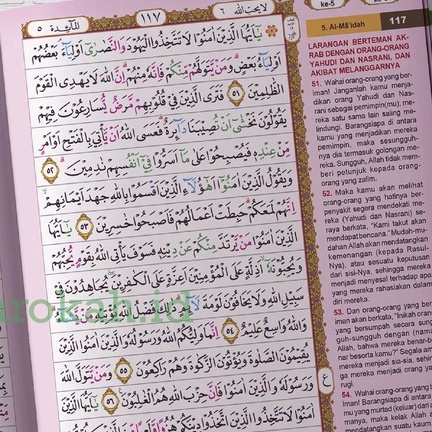 المائدة ٥
١١٧
لا يحب الله ٦
يٰٓاَيُّهَا الَّذِيْنَ اٰمَنُوْا لَا تَتَّخِذُوا الْيَهُوْدَ وَالنَّصٰرٰٓى اَوْلِيَاۤءَ بَعْضُهُمْ
اَوْلِيَاۤءُ بَعْضٍ وَمَنْ يَّتَوَلَّهُمْ مِّنْكُمْ فَاِنَّهٗ مِنْهُمْ اِنَّ اللّٰهَ لَا يَهْدِى الْقَوْمَ
الظّٰلِمِيْنَ ٥١ فَتَرَى الَّذِيْنَ فِيْ قُلُوْبِهِمْ مَّرَضٌ يُّسَارِعُوْنَ فِيْهِمْ
يَقُوْلُوْنَ نَخْشٰٓى اَنْ تُصِيْبَنَا دَاۤىِٕرَةٌ فَعَسَى اللّٰهُ اَنْ يَّأْتِيَ بِالْفَتْحِ اَوْ اَمْرٍ
مِّنْ عِنْدِهٖ فَيُصْبِحُوْا عَلٰى مَآ اَسَرُّوْا فِيْٓ اَنْفُسِهِمْ نٰدِمِيْنَ ٥٢
وَيَقُوْلُ الَّذِيْنَ اٰمَنُوْٓا اَهٰٓؤُلَاۤءِ الَّذِيْنَ اَقْسَمُوْا بِاللّٰهِ جَهْدَ اَيْمَانِهِمْ
اِنَّهُمْ لَمَعَكُمْ حَبِطَتْ اَعْمَالُهُمْ فَاَصْبَحُوْا خٰسِرِيْنَ ٥٣ يٰٓاَيُّهَا
الَّذِيْنَ اٰمَنُوْا مَنْ يَّرْتَدَّ مِنْكُمْ عَنْ دِيْنِهٖ فَسَوْفَ يَأْتِى اللّٰهُ بِقَوْمٍ يُّحِبُّهُمْ
وَيُحِبُّوْنَهٗٓ اَذِلَّةٍ عَلَى الْمُؤْمِنِيْنَ اَعِزَّةٍ عَلَى الْكٰفِرِيْنَ يُجَاهِدُوْنَ فِيْ
سَبِيْلِ اللّٰهِ وَلَا يَخَافُوْنَ لَوْمَةَ لَاۤىِٕمٍ ذٰلِكَ فَضْلُ اللّٰهِ يُؤْتِيْهِ مَنْ يَّشَاۤءُ
وَاللّٰهُ وَاسِعٌ عَلِيْمٌ ٥٤ اِنَّمَا وَلِيُّكُمُ اللّٰهُ وَرَسُوْلُهٗ وَالَّذِيْنَ اٰمَنُوا الَّذِيْنَ
يُقِيْمُوْنَ الصَّلٰوةَ وَيُؤْتُوْنَ الزَّكٰوةَ وَهُمْ رَاكِعُوْنَ ٥٥ وَمَنْ يَّتَوَلَّ اللّٰهَ
وَرَسُوْلَهٗ وَالَّذِيْنَ اٰمَنُوْا فَاِنَّ حِزْبَ اللّٰهِ هُمُ الْغٰلِبُوْنَ ٥٦ يٰٓاَيُّهَا الَّذِيْنَ
اٰمَنُوْا لَا تَتَّخِذُوا الَّذِيْنَ اتَّخَذُوْا دِيْنَكُمْ
ke-5
5. Al-Mā'idah 117
LARANGAN BERTEMAN AK-
RAB DENGAN ORANG-ORANG
YAHUDI DAN NASRANI, DAN
AKIBAT MELANGGARNYA
51. Wahai orang-orang yang ber-
iman! Janganlah kamu menja-
dikan orang Yahudi dan Nas-
rani sebagai pemimpin(mu); me-
reka satu sama lain saling me-
lindungi. Barangsiapa di antara
kamu yang menjadikan mereka
pemimpin, maka sesungguh-
nya dia termasuk golongan me-
reka. Sungguh, Allah tidak mem-
beri petunjuk kepada orang-
orang yang zalim.
52. Maka kamu akan melihat
orang-orang yang hatinya ber-
penyakit segera mendekati me-
reka (Yahudi dan Nasrani) se-
raya berkata, "Kami takut akan
mendapat bencana." Mudah-mu-
dahan Allah akan mendatangkan
kemenangan (kepada Rasul-
Nya), atau sesuatu keputusan
dari sisi-Nya, sehingga mereka
menjadi menyesal terhadap apa
yang mereka rahasiakan dalam
diri mereka.
53. Dan orang-orang yang ber-
iman akan berkata, "Inikah orang
yang bersumpah secara sung-
guh-sungguh dengan (nama)
Allah, bahwa mereka benar-be-
nar beserta kamu?" Segala am
mereka menjadi sia-sia, sehin
ga mereka menjadi orang ya
rugi.
54. Wahai orang-orang yang b
iman! Barangsiapa di antara k
mu yang murtad (keluar) dari a
manya, maka kelak Allah a
mendatangkan suatu kaum
arokah.id